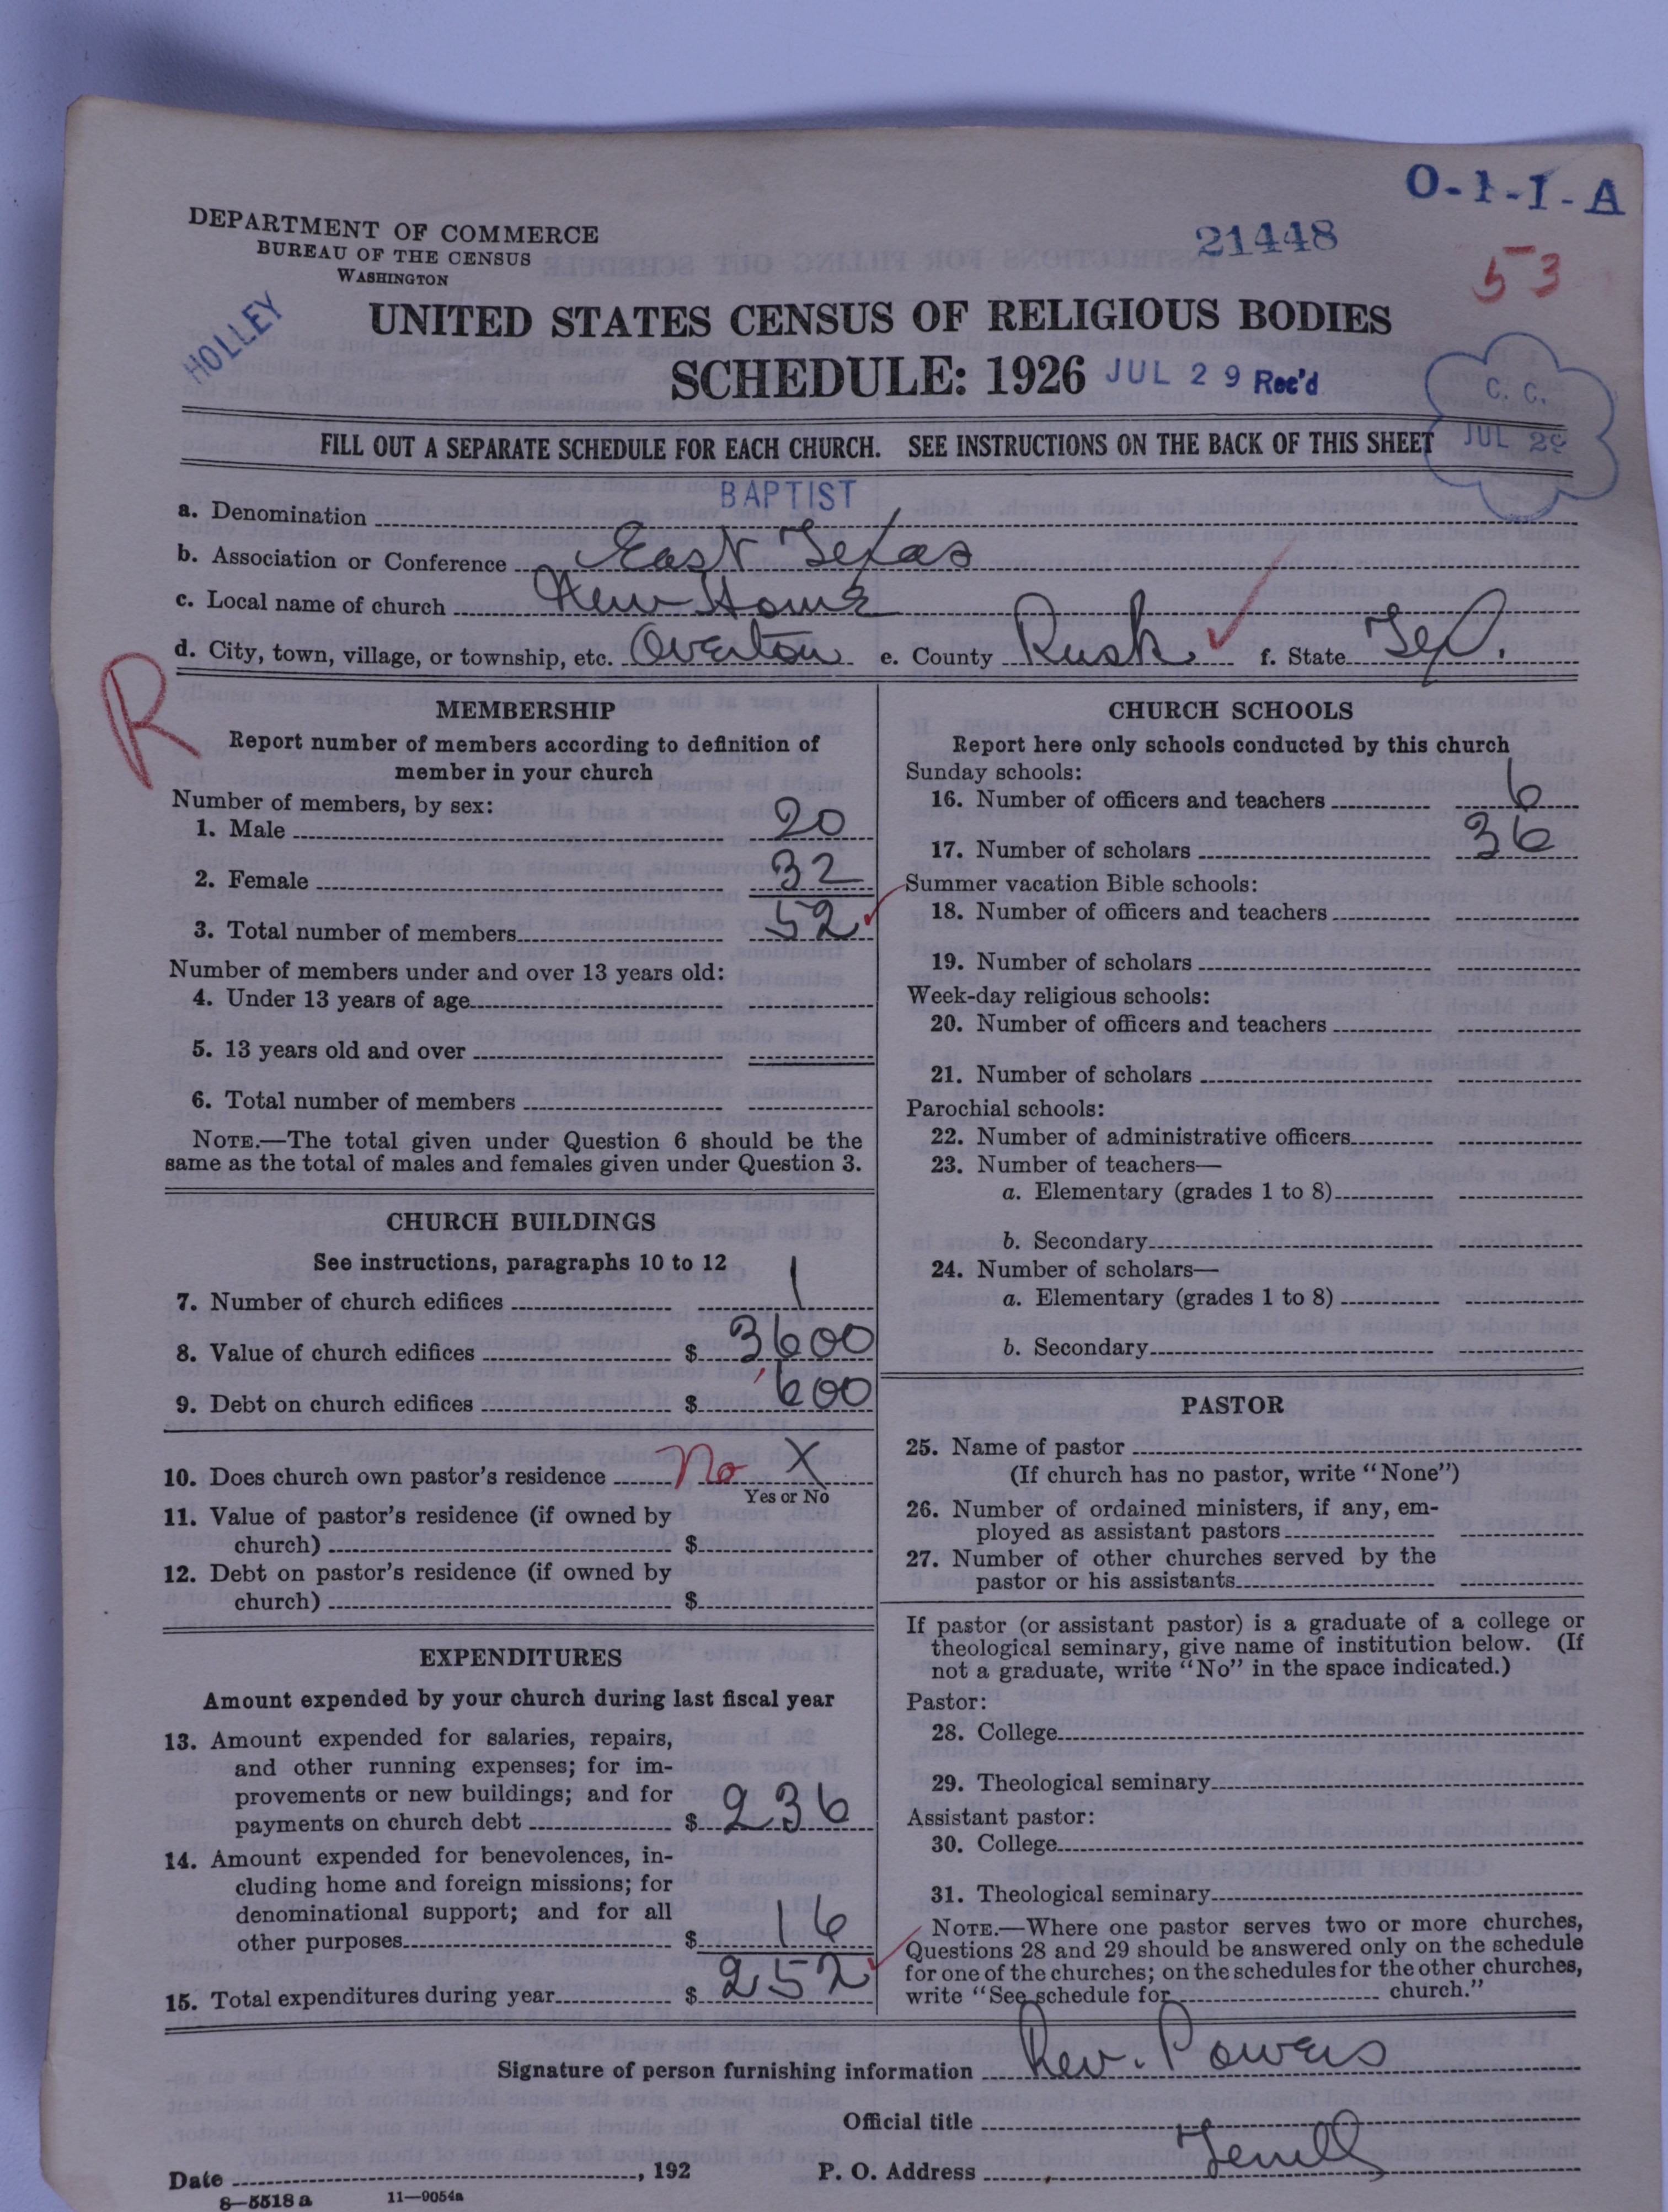 O-1-1-A
DEPARTMENT OF COMMERCE
BUREAU OF THE CENSUS
WASHINGTON
21448
53
HOLLEY
UNITED STATES CENSUS OF RELIGIOUS BODIES
SCHEDULE: 1926 JUL 29 Rec'd
C. C.
JUL 29
FILL OUT A SEPARATE SCHEDULE FOR EACH CHURCH. SEE INSTRUCTIONS ON THE BACK OF THIS SHEET
a. Denomination BAPTIST
b. Association or Conference East Texas
c. Local name of church New Home
d. City, town, village, or township, etc. Overton e. County Rusk f. State Tex.
R
MEMBERSHIP
Report number of members according to definition of
member in your church
Number of members, by sex:
1. Male 20
2. Female 32
3. Total number of members 52
Number of members under and over 13 years old:
4. Under 13 years of age
5. 13 years old and over
6. Total number of members
NOTE.—The total given under Question 6 should be the
same as the total of males and females given under Question 3.
CHURCH BUILDINGS
See instructions, paragraphs 10 to 12
7. Number of church edifices 1
8. Value of church edifices $ 3600
9. Debt on church edifices $ 600
10. Does church own pastor's residence No X
Yes or No
11. Value of pastor's residence (if owned by
church) $
12. Debt on pastor's residence (if owned by
church) $
EXPENDITURES
Amount expended by your church during last fiscal year
13. Amount expended for salaries, repairs,
and other running expenses; for im-
provements or new buildings; and for
payments on church debt $ 236
14. Amount expended for benevolences, in-
cluding home and foreign missions; for
denominational support; and for all
other purposes $ 16
15. Total expenditures during year $ 252
CHURCH SCHOOLS
Report here only schools conducted by this church
Sunday schools:
16. Number of officers and teachers 6
17. Number of scholars 36
Summer vacation Bible schools:
18. Number of officers and teachers
19. Number of scholars
Week-day religious schools:
20. Number of officers and teachers
21. Number of scholars
Parochial schools:
22. Number of administrative officers
23. Number of teachers—
a. Elementary (grades 1 to 8)
b. Secondary
24. Number of scholars—
a. Elementary (grades 1 to 8)
b. Secondary
PASTOR
25. Name of pastor
(If church has no pastor, write "None")
26. Number of ordained ministers, if any, em-
ployed as assistant pastors
27. Number of other churches served by the
pastor or his assistants
If pastor (or assistant pastor) is a graduate of a college or
theological seminary, give name of institution below. (If
not a graduate, write "No" in the space indicated.)
Pastor:
28. College
29. Theological seminary
Assistant pastor:
30. College
31. Theological seminary
NOTE.—Where one pastor serves two or more churches,
Questions 28 and 29 should be answered only on the schedule
for one of the churches; on the schedules for the other churches,
write "See schedule for church."
Signature of person furnishing information Rev. Powers
Official title
Date , 192 P. O. Address
8—5518 a 11—9054a